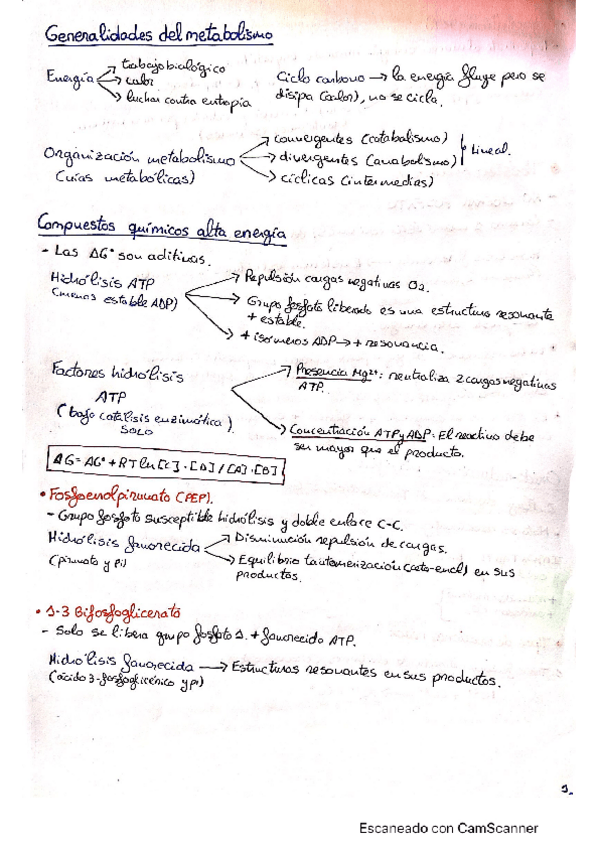 Generalidades del metabolismo
Energía → trabajo biológico
→ calor
→ luchar contra entropía
Ciclo carbono → la energía fluye pero se
disipa (calor), no se cicla.
Organización metabolismo
(vías metabólicas)
→ convergentes (catabolismo)
→ divergentes (anabolismo)
Lineal.
→ cíclicas (intermedias)
Compuestos químicos alta energía
- Las ΔG° son aditivas.
Hidrólisis ATP
(menos estable ADP)
→ Repulsión cargas negativas O2.
→ Grupo fosfato liberado es una estructura resonante
+ estable.
→ + isómeros ADP → + resonancia.
Factores hidrólisis
ATP
(bajo catálisis enzimática).
SOLO
→ Presencia Mg2+: neutraliza 2 cargas negativas
ATP.
→ Concentración ATP y ADP: El reactivo debe
ser mayor que el producto.
ΔG = ΔG° + RT ln [C]·[D] / [A]·[B]
• Fosfoenolpiruvato (PEP).
- Grupo fosfato susceptible hidrólisis y doble enlace C-C.
Hidrólisis favorecida
(piruvato y Pi)
→ Disminución repulsión de cargas.
→ Equilibrio tautomerización (ceto-enol) en sus
productos.
• 1-3 Bifosfoglicerato
- Solo se libera grupo fosfato 1. + favorecido ATP.
Hidrólisis favorecida → Estructuras resonantes en sus productos.
(ácido 3-fosfoglicérico y Pi)
1_
Escaneado con CamScanner